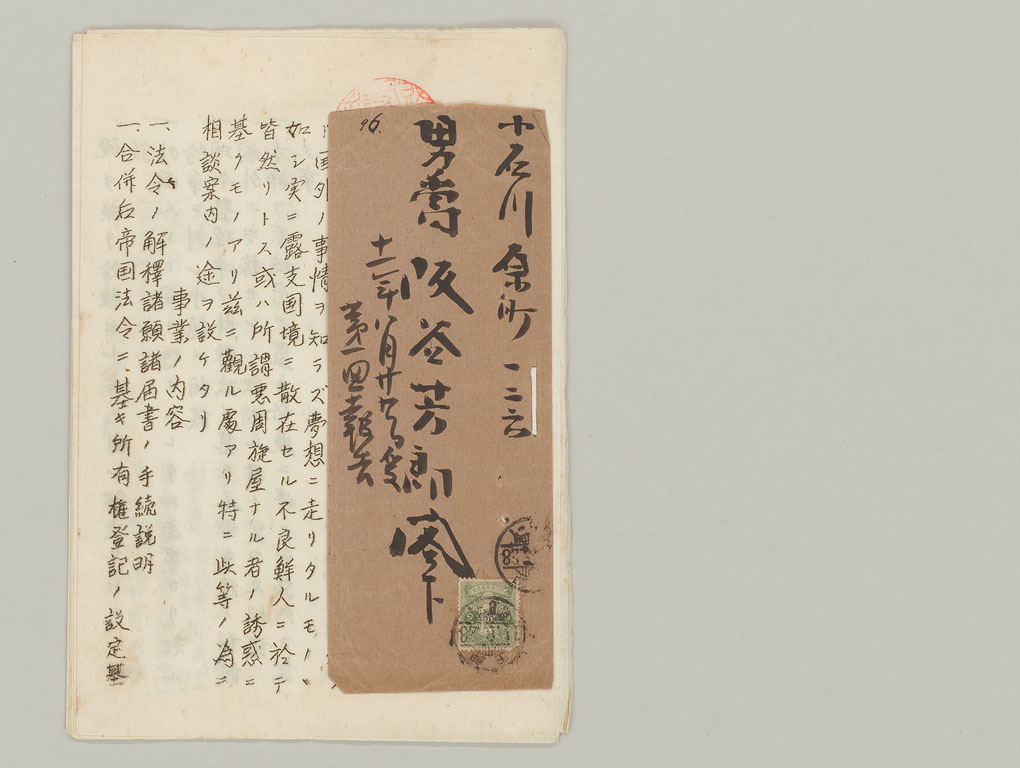 小石川原町一二六
男爵 阪谷芳郎 閣下
十二年八月廿九日受
第一回報告
96.
国外ノ事情ヲ知ラズ夢想ニ走リタルモノヽ
如シ実ニ露支国境ニ散在セル不良鮮人ニ於テ
皆然リトス或ハ所謂悪周旋屋ナル者ノ誘惑ニ
基クモノアリ茲ニ觀ル処アリ特ニ此等ノ為ニ
相談案内ノ途ヲ設ケタリ
事業ノ内容
一、法令ノ解釋諸願諸届書ノ手続説明
一、合併后帝国法令ニ基キ所有権登記ノ設定